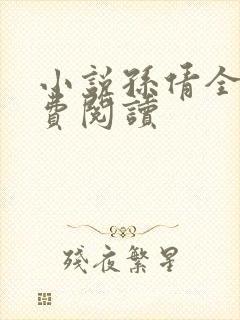 小說孫倩全
費閱讀
殘夜繁星